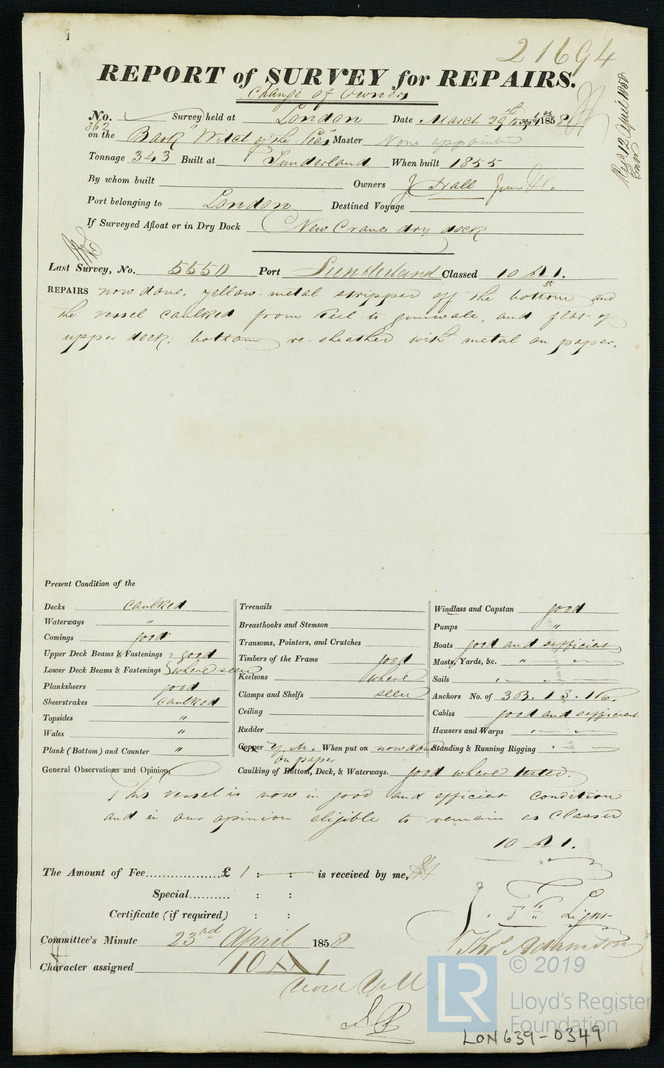 21694
REPORT of SURVEY for REPAIRS.
Change of Owners
No. 362 Survey held at London Date March 29th 1858
on the Bark "Witch of the Teas" Master None appointed
Tonnage 343 Built at Sunderland When built 1855
By whom built Owners J Hall Junr & Co.
Port belonging to London Destined Voyage
If Surveyed Afloat or in Dry Dock New Crane dry dock
Recd 12 April 1858
Last Survey, No. 5550 Port Sunderland Classed 10 A 1.
REPAIRS now done, yellow metal stripped off the bottom and
the vessel caulked from keel to gunwale, and flat of
upper deck, bottom re-sheathed with metal on paper.
Present Condition of the
Decks caulked
Waterways "
Comings good
Upper Deck Beams & Fastenings good
Lower Deck Beams & Fastenings where seen
Planksheers good
Sheerstrakes caulked
Topsides "
Wales "
Plank (Bottom) and Counter "
Treenails
Breasthooks and Stemson
Transoms, Pointers, and Crutches
Timbers of the Frame good
Keelsons where
Clamps and Shelfs seen
Ceiling
Rudder
Copper Y.M. When put on now done
on paper
Caulking of Bottom, Deck, & Waterways. good where tested.
Windlass and Capstan good
Pumps "
Boats good and sufficient
Masts, Yards, &c. "
Sails
Anchors No. of 3B. 1S. 1K.
Cables good and sufficient
Hawsers and Warps
Standing & Running Rigging
General Observations and Opinion,
This vessel is now in good and efficient condition
and in our opinion eligible to remain as Classed
10 A 1.
The Amount of Fee £ 1 : : is received by me,
Special : :
Certificate (if required) : :
Committee's Minute 23rd April 1858
Character assigned 10 A 1
Thos Adamson
© 2019
LR
Lloyd's Register
Foundation
LON639-0349